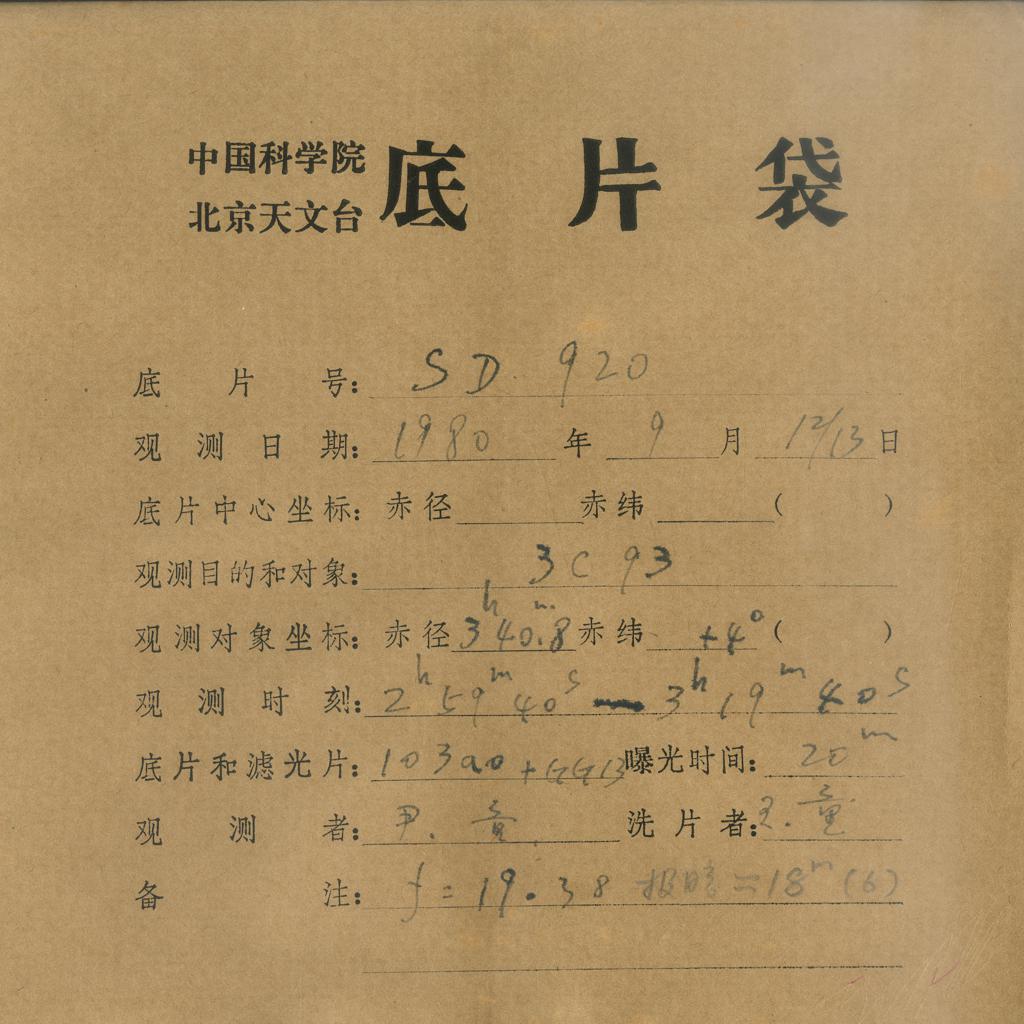 中国科学院
北京天文台
底片袋
底片号: SD 920
观测日期: 1980 年 9 月 12/13 日
底片中心坐标: 赤径 赤纬 ( )
观测目的和对象: 3C 93
观测对象坐标: 赤径 3h40m.8 赤纬 +4° ( )
观测时刻: 2h59m40s — 3h19m40s
底片和滤光片: 103aO + GG13 曝光时间: 20m
观测者: 洗片者:
备注: f = 19.38 = 18m (6)